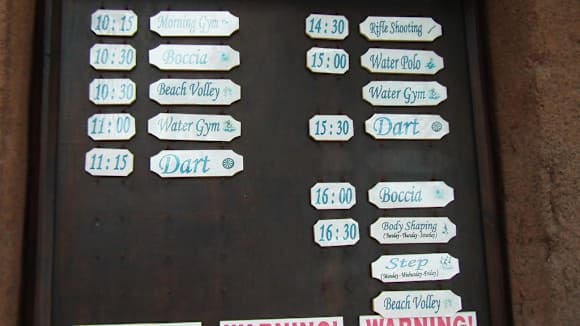 10:15 Morning Gym
10:30 Boccia
10:30 Beach Volley
11:00 Water Gym
11:15 Dart
14:30 Rifle Shooting
15:00 Water Polo
Water Gym
15:30 Dart
16:00 Boccia
16:30 Body Shaping
(Tuesday-Thursday-Saturday)
Step
(Monday-Wednesday-Friday)
Beach Volley
WARNING!
WARNING!